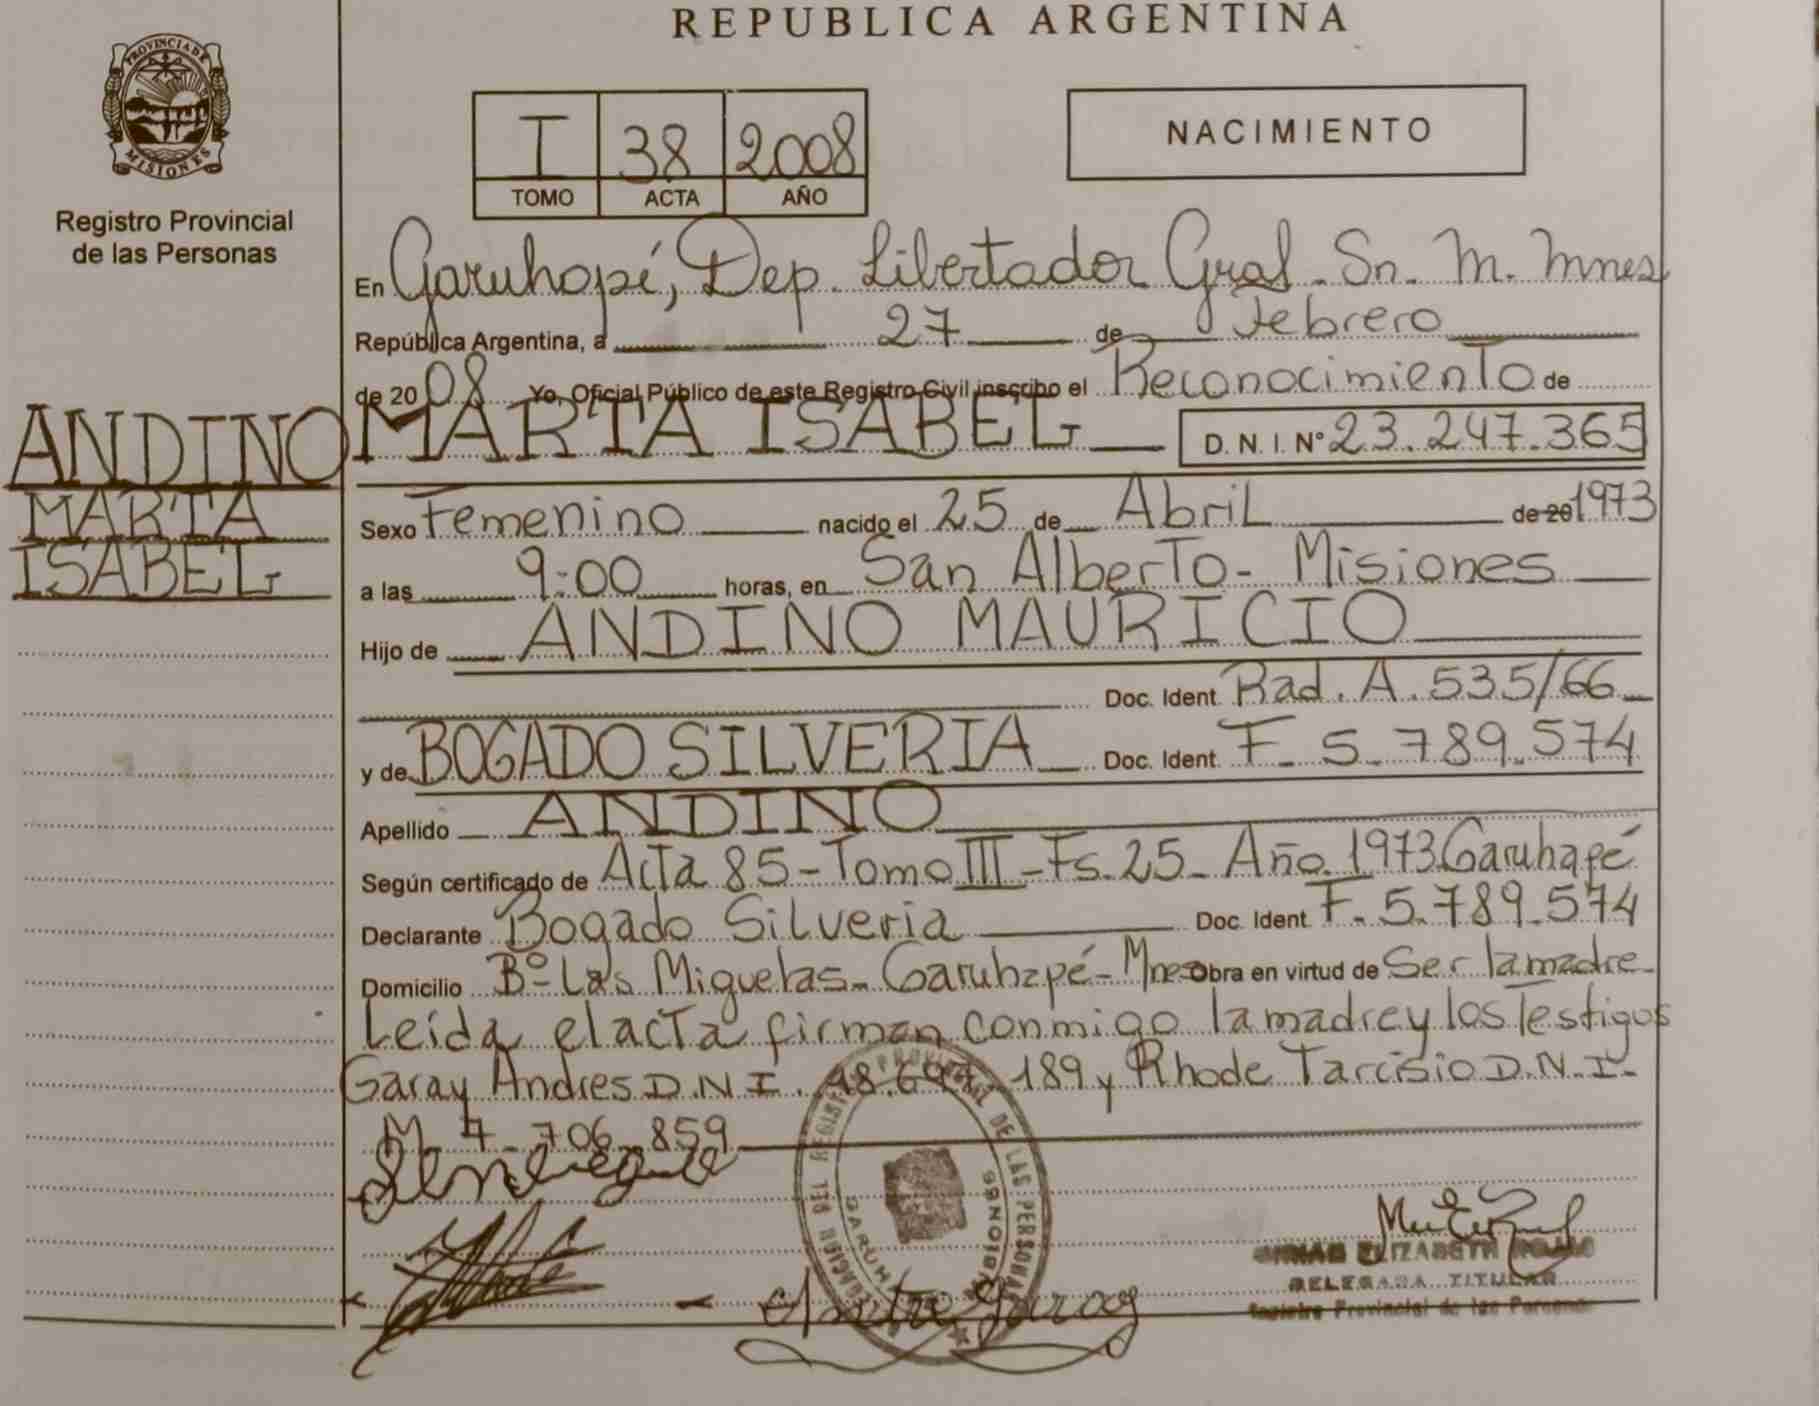 REPUBLICA ARGENTINA
PROVINCIA DE MISIONES
Registro Provincial
de las Personas
I 38 2008
TOMO ACTA AÑO
NACIMIENTO
En Garuhapé, Dep. Libertador Gral. Sn. M. Mnes
República Argentina, a 27 de Febrero
de 2008 Yo, Oficial Público de este Registro Civil inscribo el Reconocimiento de
ANDINO
MARTA
ISABEL
MARTA ISABEL D. N. I. N° 23.247.365
Sexo Femenino nacido el 25 de Abril de 20 1973
a las 9:00 horas, en San Alberto - Misiones
Hijo de ANDINO MAURICIO
Doc. Ident. Rad. A. 535/66
y de BOGADO SILVERIA Doc. Ident. F. 5.789.574
Apellido ANDINO
Según certificado de Acta 85 - Tomo III - Fs. 25 - Año 1973 Garuhapé
Declarante Bogado Silveria Doc. Ident. F. 5.789.574
Domicilio B° Las Miguelas - Garuhapé - Mnes Obra en virtud de Ser la madre
Leída el acta firman conmigo la madre y los Testigos
Garay Andres D.N.I. 189 y Rhode Tarcisio D.N.I.
M. 7.706.859
REGISTRO PROVINCIAL DE LAS PERSONAS
MISIONES
Andre Garay
ELIZABETH ROJAS
DELEGADA TITULAR
Registro Provincial de las Personas